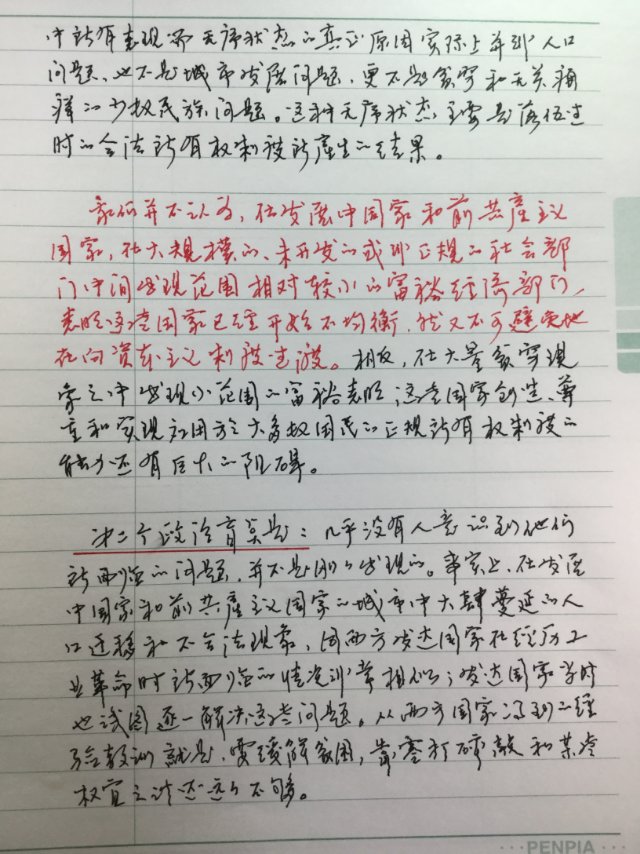 中所有表现那无序状态的真正原因实际上并非人口
问题、也不是城市发展问题、更不是贫穷和无关痛
痒的少数民族问题。这种无序状态,主要是落伍过
时的合法所有权制度所產生的结果。
我们并不认为,在发展中国家和前共產主义
国家,在大规模的、未开发的或非正规的社会部
门中间出现范围相对较小的富裕经济部门,
表明这些国家已经开始不均衡,然又不可避免地
在向资本主义制度过渡。相反,在大量贫穷现
象之中出现小范围的富裕表明这些国家创造、尊
重和实现和用於大多数国民的正规所有权制度的
能力还有巨大的阻碍。
第二个政治盲点是:几乎没有人意识到他们
所面临的问题,并不是刚刚出现的。事实上,在发展
中国家和前共產主义国家的城市中大肆蔓延的人
口迁移和不合法现象,同西方发达国家在经历工
业革命时所面临的情况非常相似;发达国家当时
也试图逐一解决这些问题。从西方国家得到的经
验教训就是,要缓解贫困,靠零打碎敲和某些
权宜之计还远远不够。
PENPIA